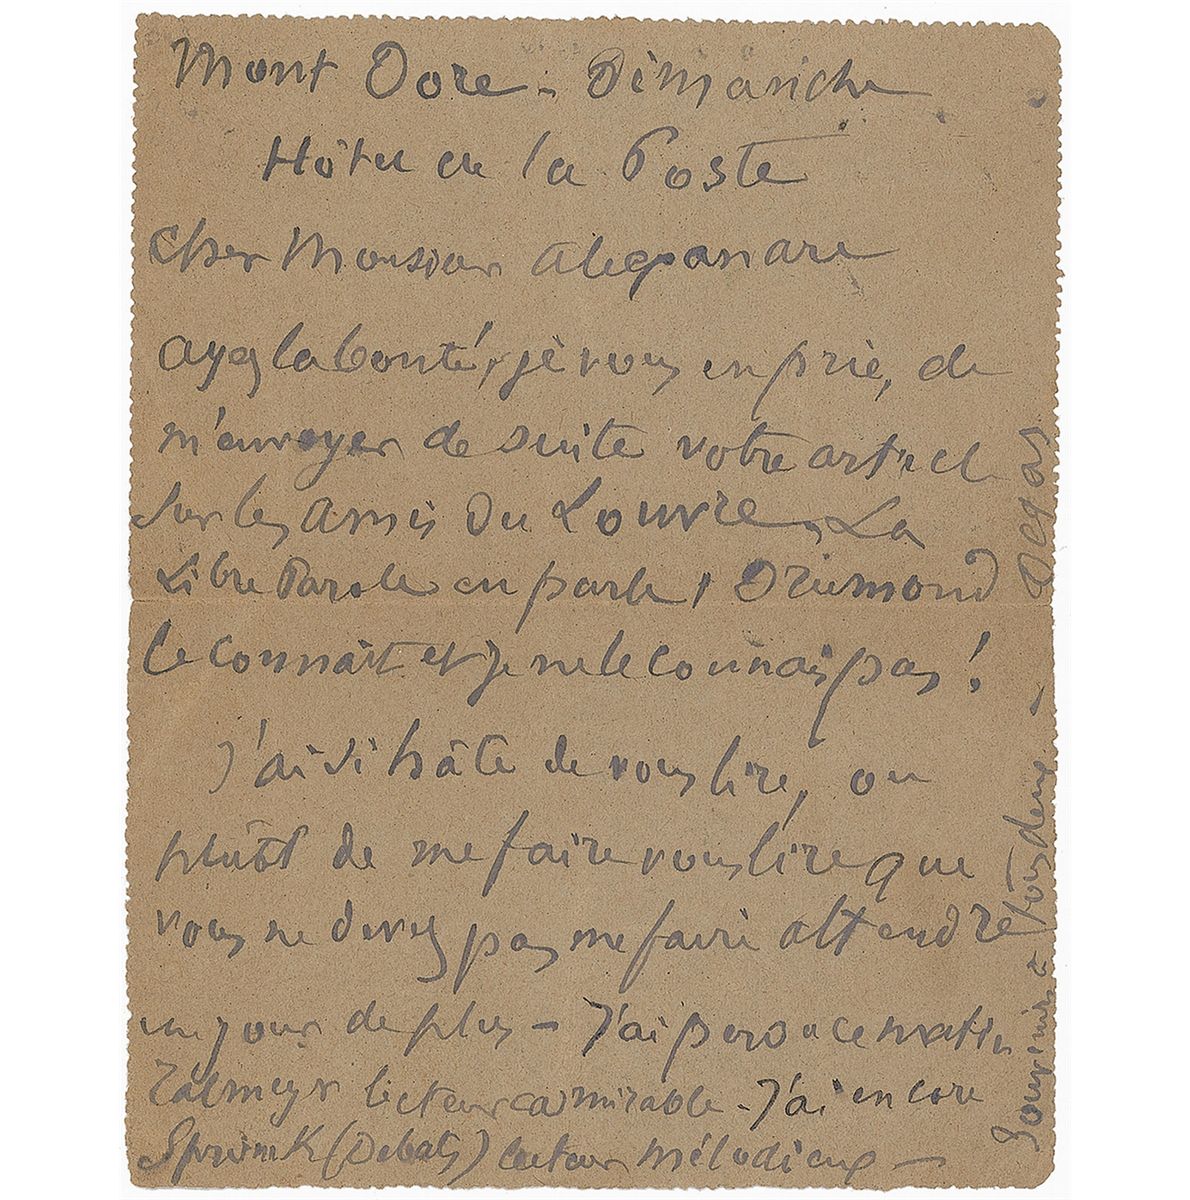 Mont Dore - Dimanche
Hôtel de la Poste
Cher Monsieur Alexandre
ayez la bonté, je vous en prie, de
m'envoyer de suite votre article
sur les Amis du Louvre. La
Libre Parole en parle, Drumond
le connaît et je ne le connais pas!
J'ai si hâte de vous lire, ou
plutôt de me faire vous lire que
vous ne devez pas me faire attendre
un jour de plus - J'ai perdu ce matin
Talmeyr lecteur admirable - J'ai encore
(Debats) lecteur mélodieux -
Souvenirs à tous deux -
Degas